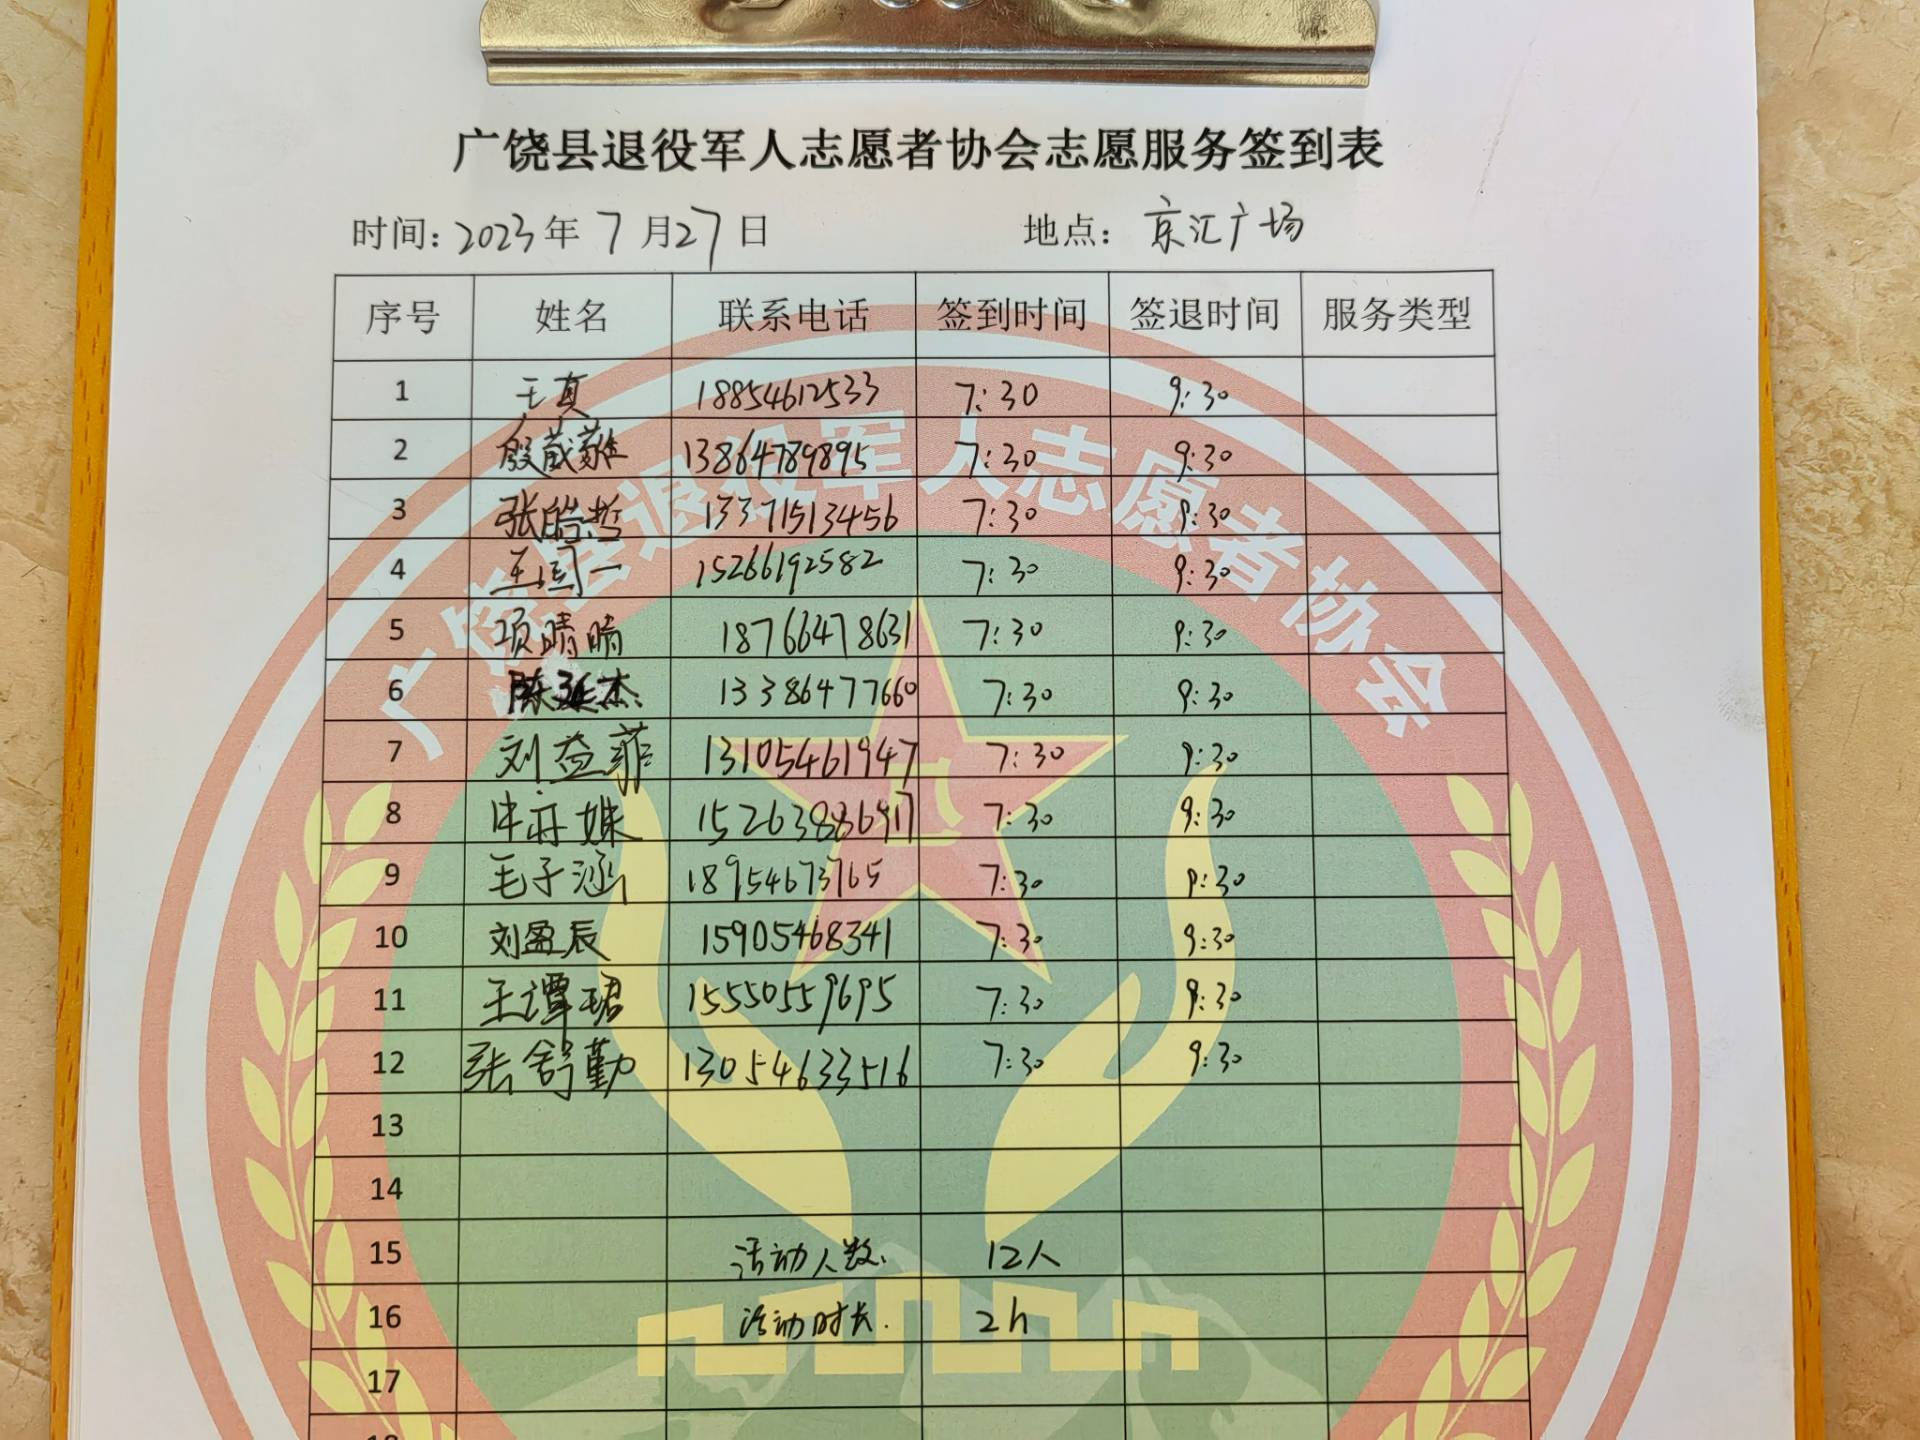 广饶县退役军人志愿者协会志愿服务签到表
时间：2023年 7 月27 日 地点：京汇广场
序号 姓名 联系电话 签到时间 签退时间 服务类型
1 王真 18854612533 7:30 9:30
2 殷 13864789895 7:30 9:30
3 张皓哲 13371513456 7:30 9:30
4 王 一 15266192582 7:30 9:30
5 项晴晴 18766478631 7:30 9:30
6 陈延杰 13386477660 7:30 9:30
7 刘益菲 13105461947 7:30 9:30
8 7:30 9:30
9 毛子涵 18954673765 7:30 9:30
10 刘盈辰 15905468341 7:30 9:30
11 王谭珺 15550559695 7:30 9:30
12 张舒勤 13054633516 7:30 9:30
13
14
15 活动人数. 12人
16 活动时长. 2h
17
18
广饶县退役军人志愿者协会